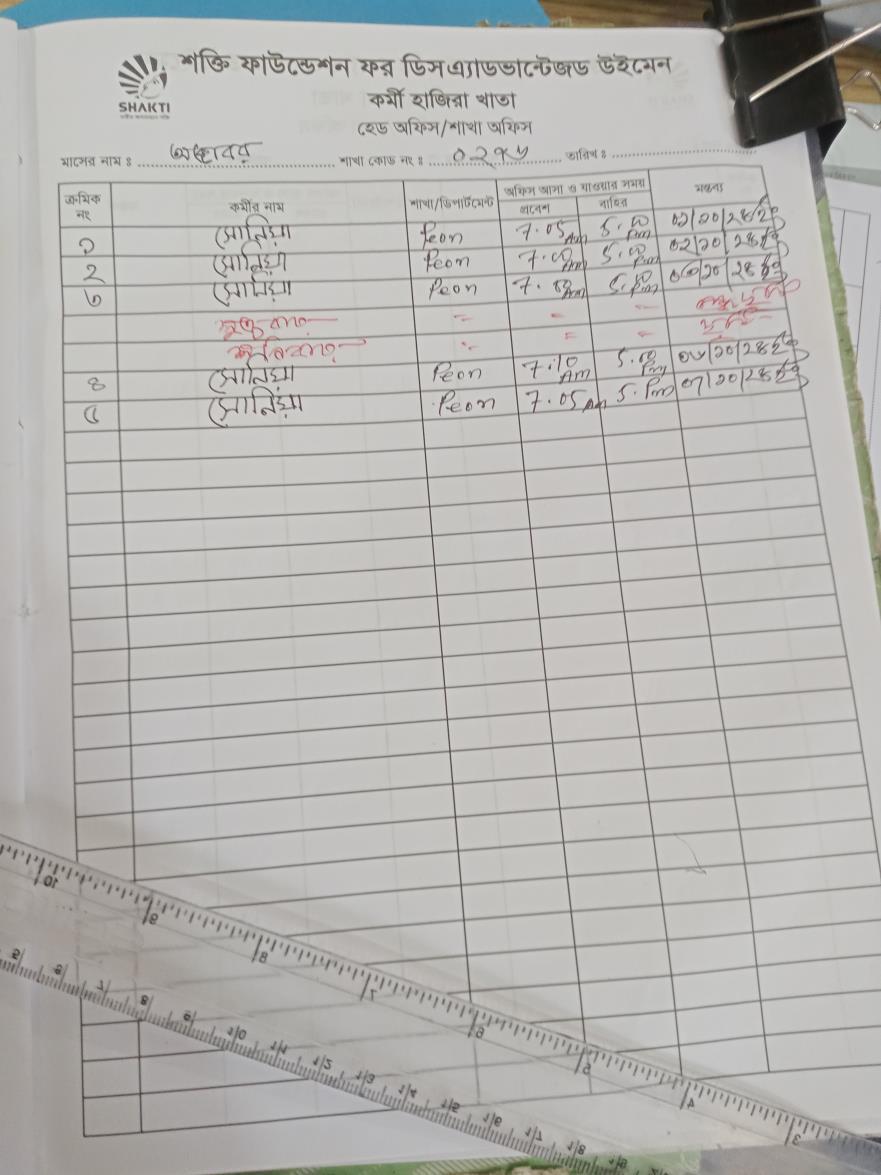 শক্তি ফাউন্ডেশন ফর ডিসএ্যাডভান্টেজড উইমেন
SHAKTI
কর্মী হাজিরা খাতা
হেড অফিস/শাখা অফিস
মাসের নাম ঃ অক্টোবর শাখা কোড নং ঃ ০২৭৬ তারিখ ঃ
ক্রমিক নং কর্মীর নাম শাখা/ডিপার্টমেন্ট অফিস আসা ও যাওয়ার সময় মন্তব্য
প্রবেশ বাহির
১ সোনিয়া Peon 7.05 Am 5.00 Pm
২ সোনিয়া Peon 7.00 Am 5.00 Pm ০২/১০/২৪
৩ সোনিয়া Peon 7. Am 5.00 Pm ০৩/১০/২৪
শুক্রবার
শনিবার
৪ সোনিয়া Peon 7.10 Am 5.00 Pm ০৬/১০/২৪
৫ সোনিয়া Peon 7.05 Am 5. Pm ০৭/১০/২৪